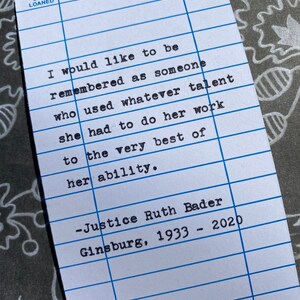 LOANED
I would like to be
remembered as someone
who used whatever talent
she had to do her work
to the very best of
her ability.
-Justice Ruth Bader
Ginsburg, 1933 - 2020